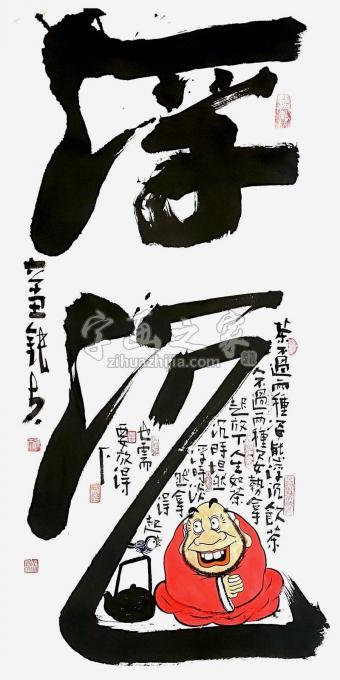 浮沉
茶不過两種姿態浮沉飲茶
人不過两種姿勢拿
起放下人生如茶
沉時坦然
浮時淡
然拿
得起
也需
要放得
下
字画之家
zihuazhijia.com